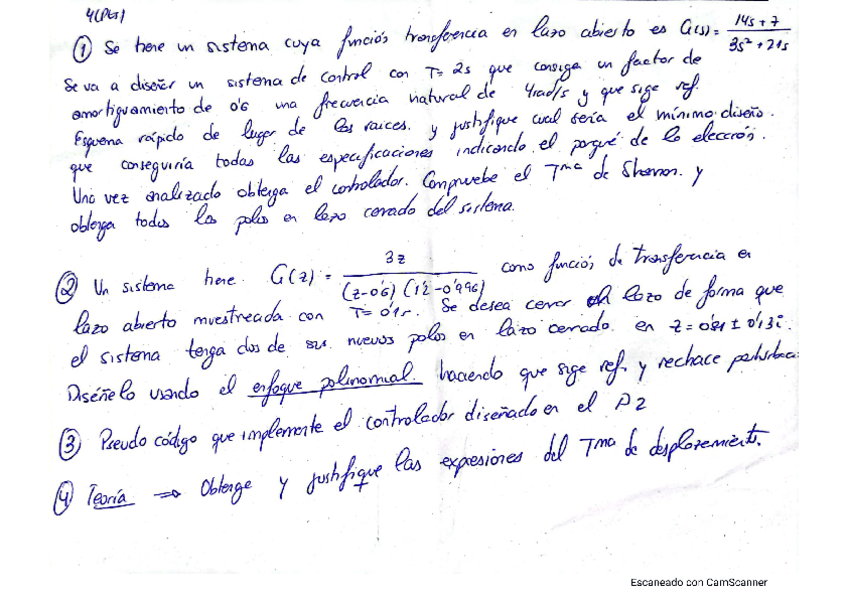 4(PG)
① Se tiene un sistema cuya función transferencia en lazo abierto es G(s) = 14s + 7 / 3s² + 21s
Se va a diseñar un sistema de control con T = 2s que consiga un factor de
amortiguamiento de 0'6 una frecuencia natural de 4rad/s y que siga ref.
Esquema rápido de lugar de las raices. y justifique cual sería el mínimo diseño.
que conseguiría todas las especificaciones indicando el porqué de la elección.
Una vez analizado obtenga el controlador. Compruebe el Tma de Shannon. y
obtenga todos los polos en lazo cerrado del sistema.
② Un sistema tiene G(z) = 3z / (z-0'6) (1'2-0'996) como función de transferencia en
lazo abierto muestreada con T = 0'1s. Se desea cerrar el lazo de forma que
el sistema tenga dos de sus nuevos polos en lazo cerrado en z = 0'81 ± 0'13i.
Diséñelo usando el enfoque polinomial haciendo que siga ref. y rechace perturbac.
③ Pseudo código que implemente el controlador diseñado en el P2
④ Teoría ⇒ Obtenga y justifique las expresiones del Tma de desplazamiento.
Escaneado con CamScanner